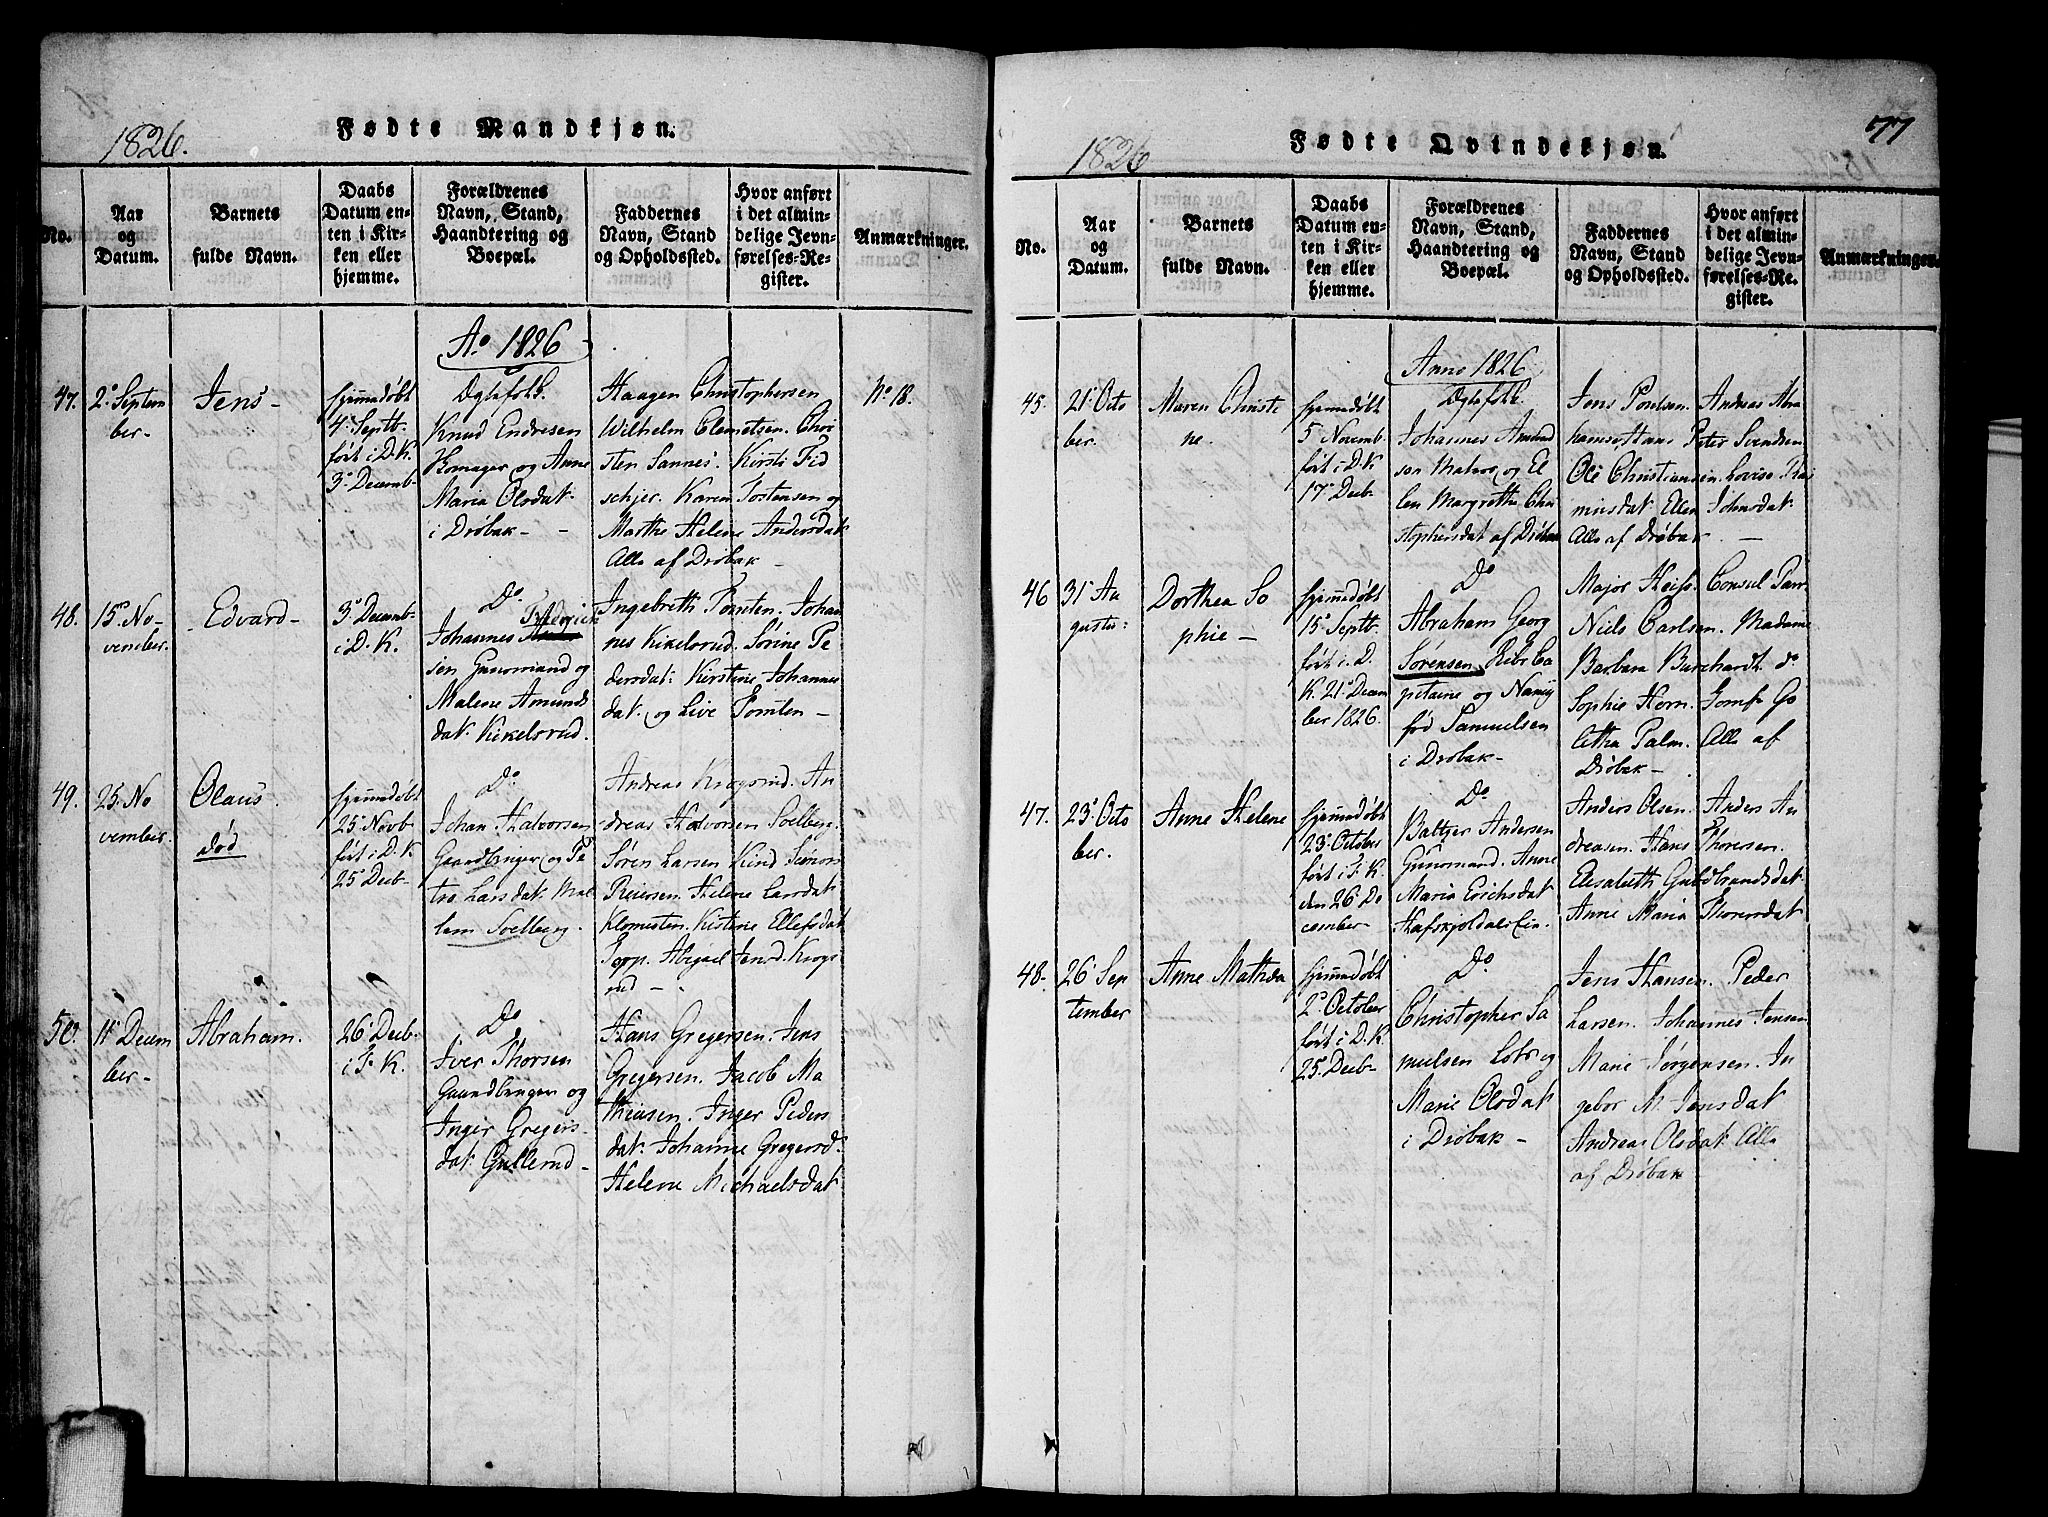 1826.
Fødte Mandkjøn.
No.
Aar og Datum.
Barnets fulde Navn.
Daabs Datum enten i Kirken eller hjemme.
Forældrenes Navn, Stand, Haandtering og Boepæl.
Faddernes Navn, Stand og Opholdssted.
Hvor anført i det almindelige Jevnførelses-Register.
Anmærkninger.
Ao 1826
47.
2. Septem
ber.
Jens
hjemmedøbt
4. Septt.
ført i D. K.
3. Decemb
Ægtefolk.
Knud Endresen
og Anne
Maria Olsdat.
i Drøbak
Haagen Christophersen
Wilhelm Clemetsen. Chri
sten Sannes. Kirsti Fid
schjer. Karen Tostensen og
Marthe Helene Andersdat
Alle af Drøbak
No 18.
48.
15. No-
vember.
Edvard
3. Decemb
i D. K.
Do
Johannes Frederich
sen Gunomand og
Malene Amunds
dat. Kikelsrud.
Ingebreth Tomten. Johan
nes Kikelsrud. Sørine Pe
dersdat: Kirstine Johannes
dat. og Live Tomten
49.
25. No
vember.
Olaus
død
hjemmedøbt
25. Novb
ført i D. K
25. Decb
Do
Johan Halvorsen
Gaardbruger og Pe
tra Larsdat.
Soelberg.
Andreas Krogsrud. An
dreas Halvorsen Soelberg.
Søren Larsen Kind
Reiersen. Helene Larsdat
Klomesten. Kistene Ellefsdat
Torp. Abigael Jensd. Krogs
rud
50.
11. Decem
ber
Abraham.
26. Decb
i F. K.
Do
Iver Thorsen
Gaardbruger og
Inger Gregers
dat. Gullerud
Hans Gregersen. Jens
Gregersen. Jacob Ma
thiesen. Inger Peders
dat. Johanne Gregersd.
Helene Michaelsdat
1826
Fødte Qvindekjøn.
77
No.
Aar og Datum.
Barnets fulde Navn.
Daabs Datum enten i Kirken eller hjemme.
Forældrenes Navn, Stand, Haandtering og Boepæl.
Faddernes Navn, Stand og Opholdssted.
Hvor anført i det almindelige Jevnførelses-Register.
Anmærkninger.
Anno 1826
45.
21. Octo
ber.
Maren Christi
ne.
hjemmedøbt
5 Novemb
ført i D. K
17. Decb
Ægtefolk.
Johannes Amund
sen Matros og El
len Margrethe Chri
stophersdat af Drøbak
Jens Poulsen. Andreas Abra
hamsen Hans Peter Svendsen
Ole Christiansen. Lovise
Ellen Johnsdat.
Alle af Drøbak
46
31. Au
gustu:
Dorthea So
phie
hjemmedøbt
15. Septt.
ført i D.
K. 21. Decem
ber 1826.
Do
Abraham Georg
Sørensen Skibs Ca
pitaine og Nancy
fød Samuelsen
i Drøbak
Major Heiss. Consul Parr
Niels Carlsen. Madame
Barbara Burchardt do
Sophie Horn. Jomf. Go
Palm. Alle af
Drøbak
47.
23. Octo
ber.
Anne Helene
hjemmedøbt
23. October
ført i F. K.
den 26. De
cember
Do
Baltzer Andersen
Gunomand. Anne
Maria Erichsdat
Anders Olsen. Anders An
dreasen. Hans Thoresen.
Elisabeth Guldbrandsdat.
Anne Maria Thoresdat.
48.
26. Sep
tember
Anne Mathea
hjemmedøbt
2. October
ført i D. K.
25. Decb
Do
Christopher Sa
muelsen Lods og
Marie Olsdat
i Drøbak
Jens Hansen. Peder
Larsen. Johannes Jensen
Marie Jørgensen. In
gebor M. Jensdat
Andrea Olsdat. Alle
af Drøbak